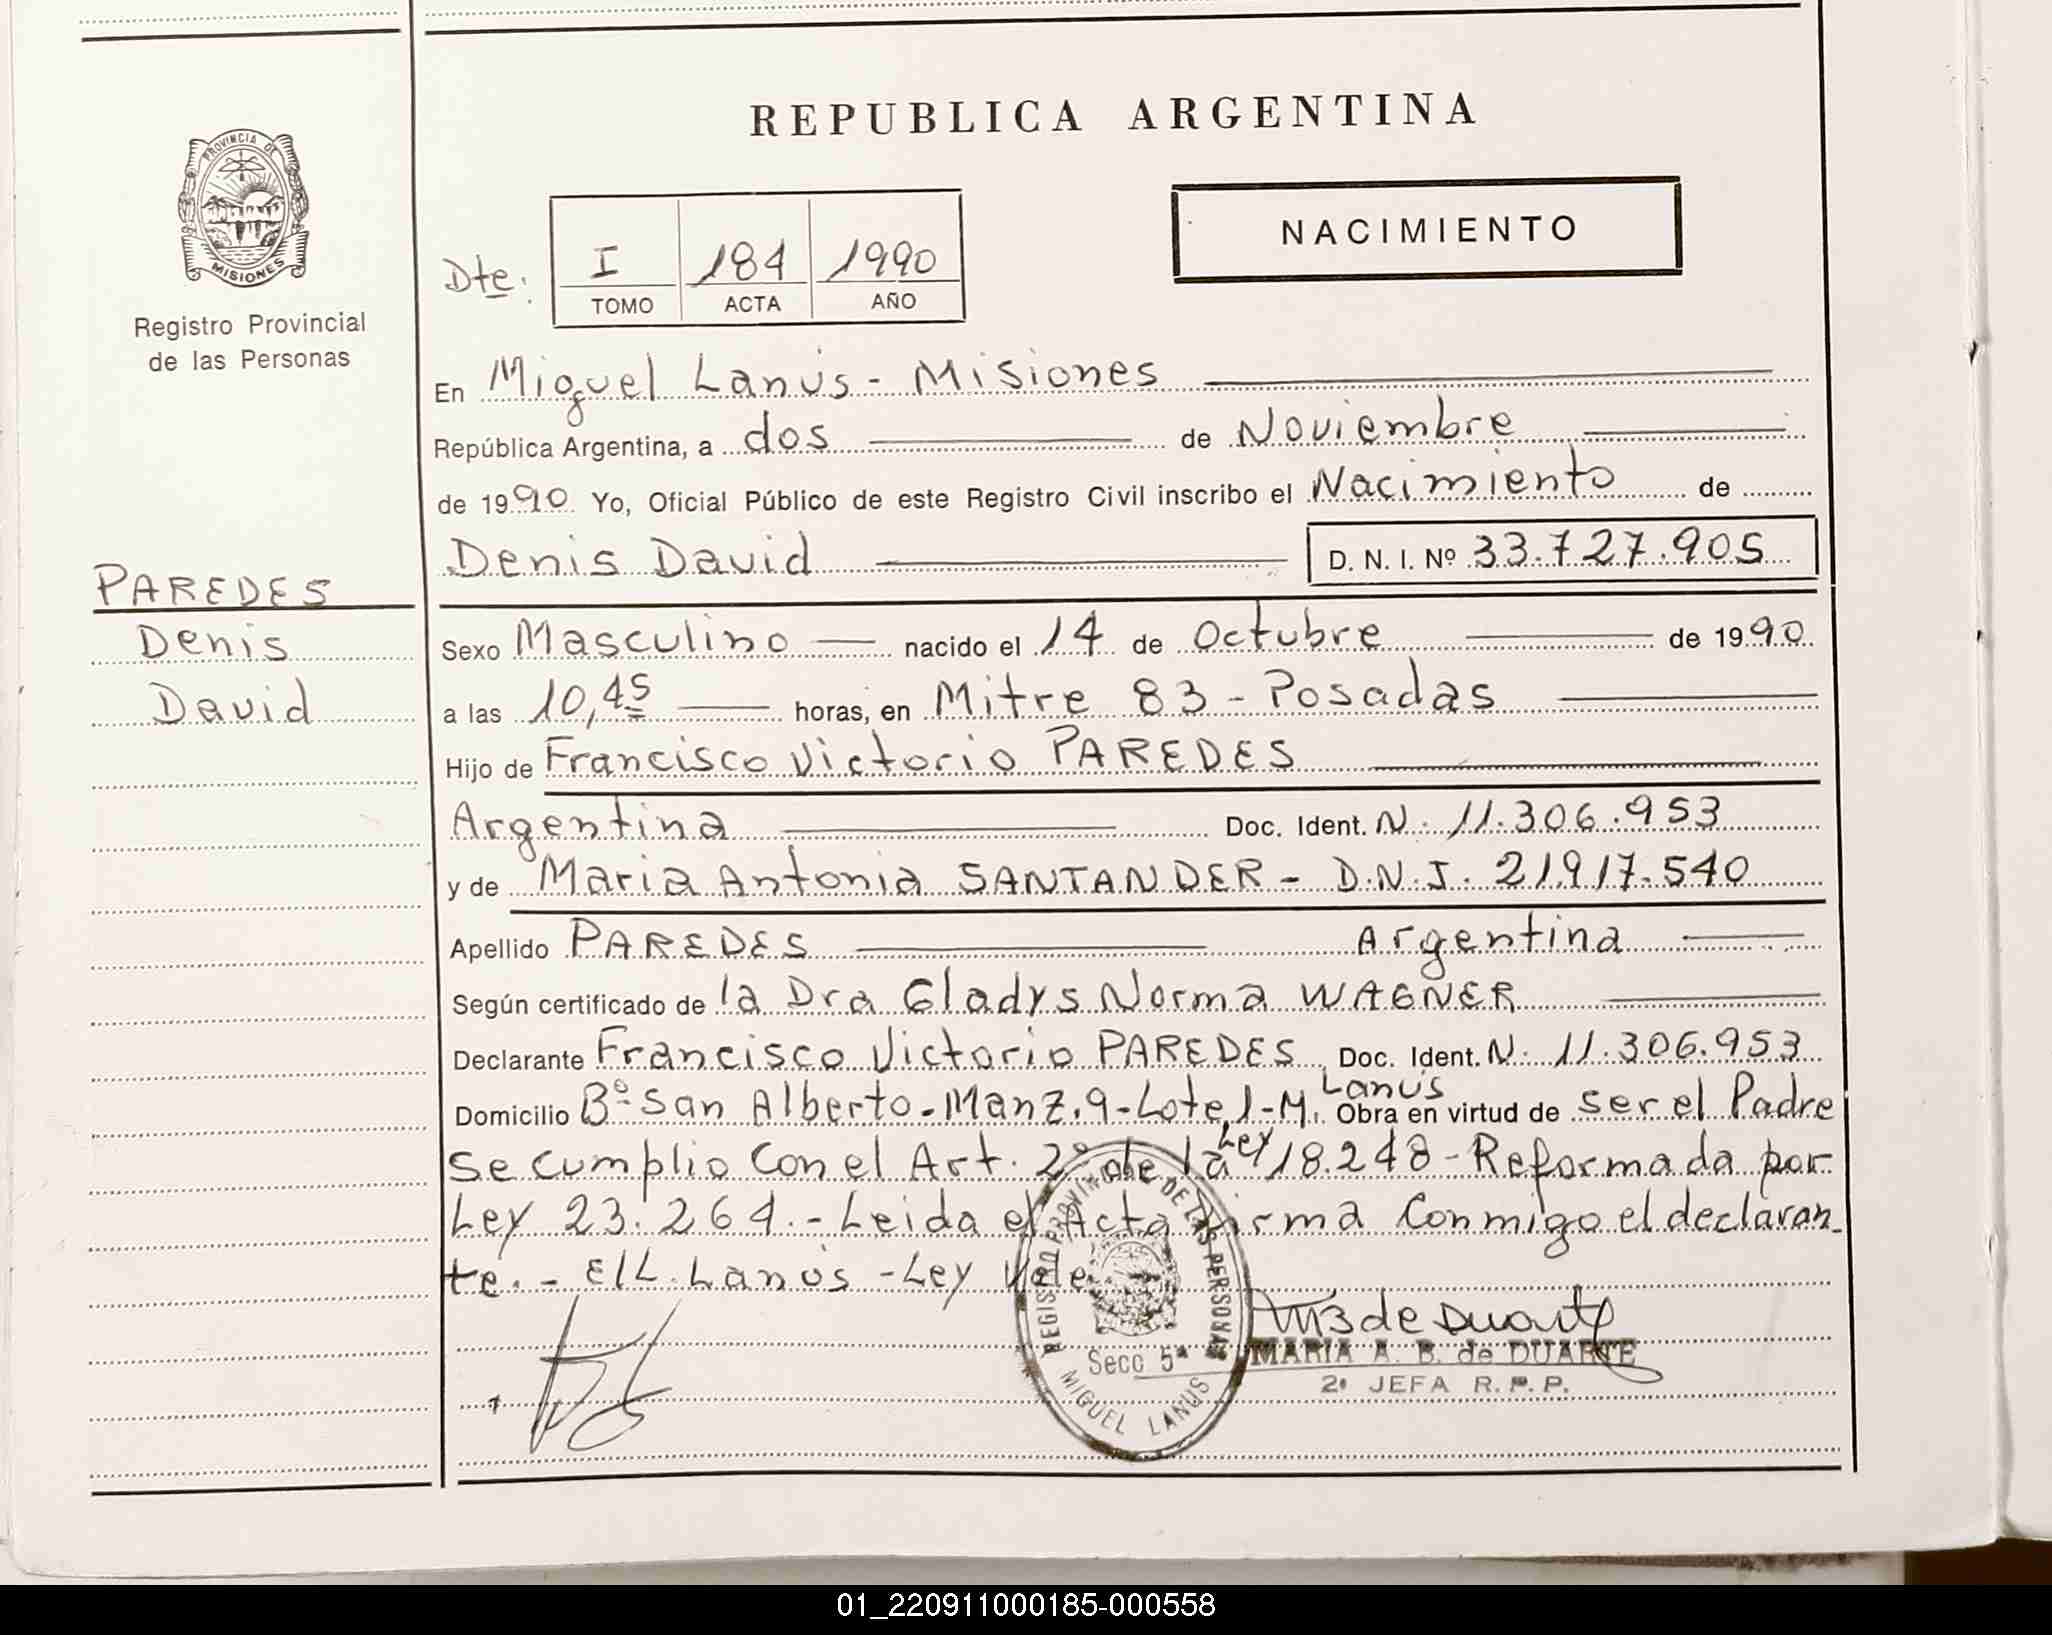 REPUBLICA ARGENTINA
PROVINCIA DE MISIONES
Registro Provincial
de las Personas
NACIMIENTO
Dte: I 184 1990
TOMO ACTA AÑO
En Miguel Lanús - Misiones
República Argentina, a dos de Noviembre
de 1990 Yo, Oficial Público de este Registro Civil inscribo el Nacimiento de
Denis David D. N. I. Nº 33.727.905
PAREDES
Denis
David
Sexo Masculino nacido el 14 de Octubre de 1990
a las 10,45 horas, en Mitre 83 - Posadas
Hijo de Francisco Victorio PAREDES
Argentina Doc. Ident. N. 11.306.953
y de Maria Antonia SANTANDER - D.N.I. 21.917.540
Apellido PAREDES Argentina
Según certificado de la Dra Gladys Norma WAGNER
Declarante Francisco Victorio PAREDES Doc. Ident. N. 11.306.953
Domicilio Bº San Alberto - Manz. 9 - Lote 1 - M. Lanús Obra en virtud de ser el Padre
Se cumplio con el Art. 2º de la Ley 18.248 - Reformada por
Ley 23.264. - Leida el Acta firma conmigo el declaran
te. - E/L. Lanús - Ley Vale
REGISTRO PROVINCIAL DE LAS PERSONAS
Secc 5ª
MIGUEL LANUS
M B de Duarte
MARIA A. B. de DUARTE
2ª JEFA R. P. P.
01_220911000185-000558